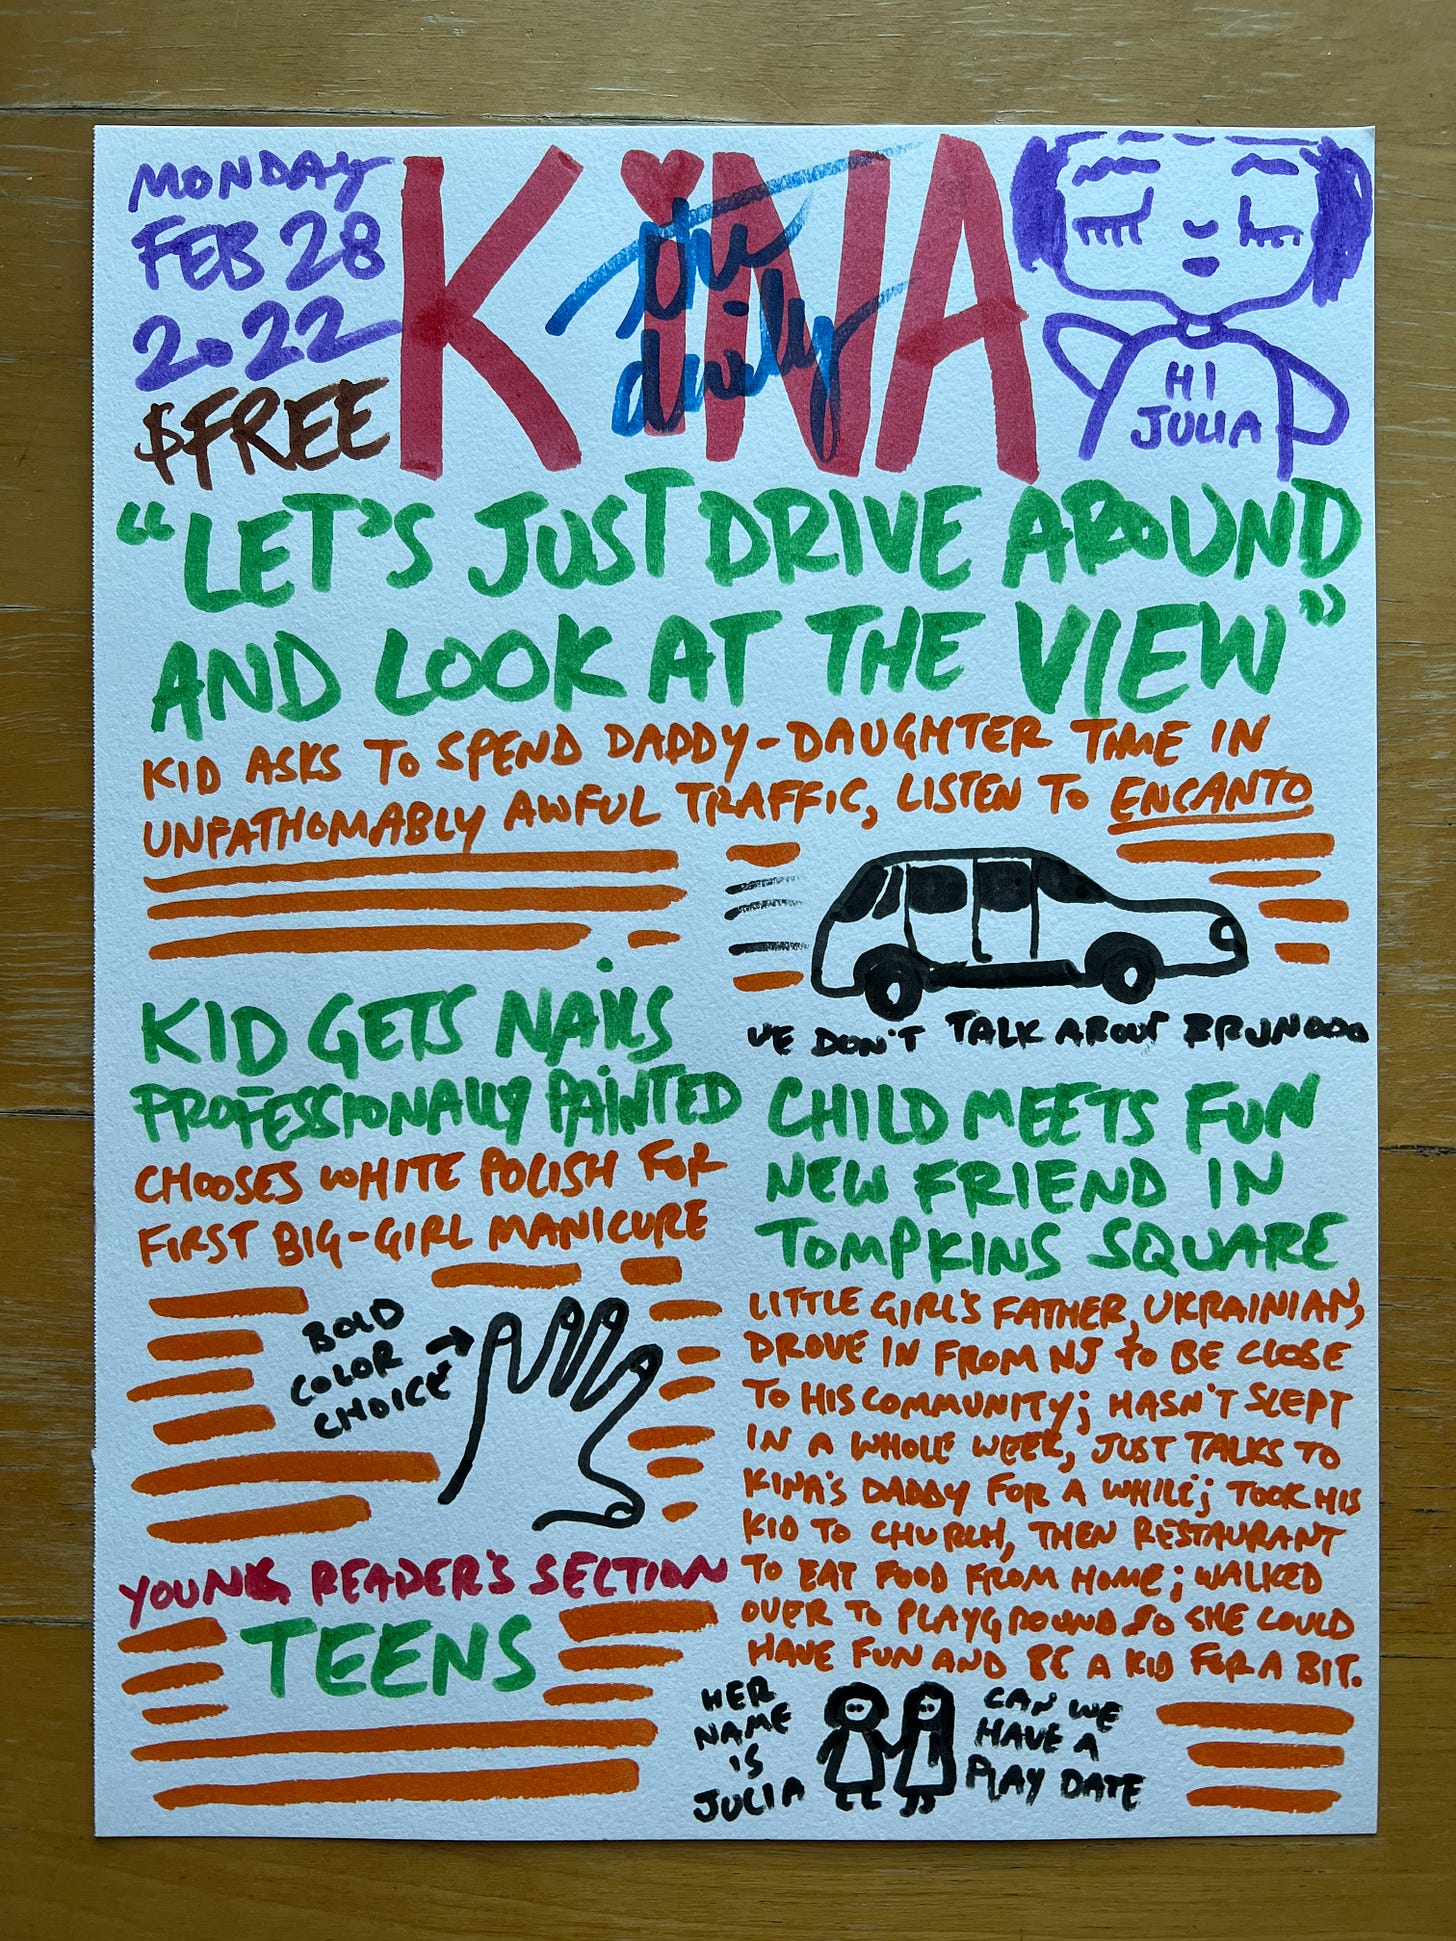 MONDAY
FEB 28
2022
$FREE
KiNA
the
daily
HI
JULIA
“LET'S JUST DRIVE AROUND
AND LOOK AT THE VIEW”
KID ASKS TO SPEND DADDY-DAUGHTER TIME IN
UNFATHOMABLY AWFUL TRAFFIC, LISTEN TO ENCANTO
WE DON'T TALK ABOUT BRUNOOO
KID GETS NAiLS
PROFESSIONALLY PAiNTED
CHOOSES WHITE POLISH FOR
FIRST BIG-GIRL MANICURE
BOLD
COLOR
CHOICE
YOUNG READER'S SECTION
TEENS
CHILD MEETS FUN
NEW FRIEND IN
TOMPKINS SQUARE
LITTLE GIRL'S FATHER, UKRAINIAN,
DROVE IN FROM NJ to BE CLOSE
TO HIS COMMUNITY; HASN'T SLEPT
IN A WHOLE WEEK, JUST TALKS TO
KINA'S DADDY FOR A WHILE; TOOK HIS
KID TO CHURCH, THEN RESTAURANT
TO EAT FOOD FROM HOME; WALKED
OVER TO PLAYGROUND SO SHE COULD
HAVE FUN AND BE A KID FOR A BIT.
HER
NAME
IS
JULIA
CAN WE
HAVE A
PLAY DATE